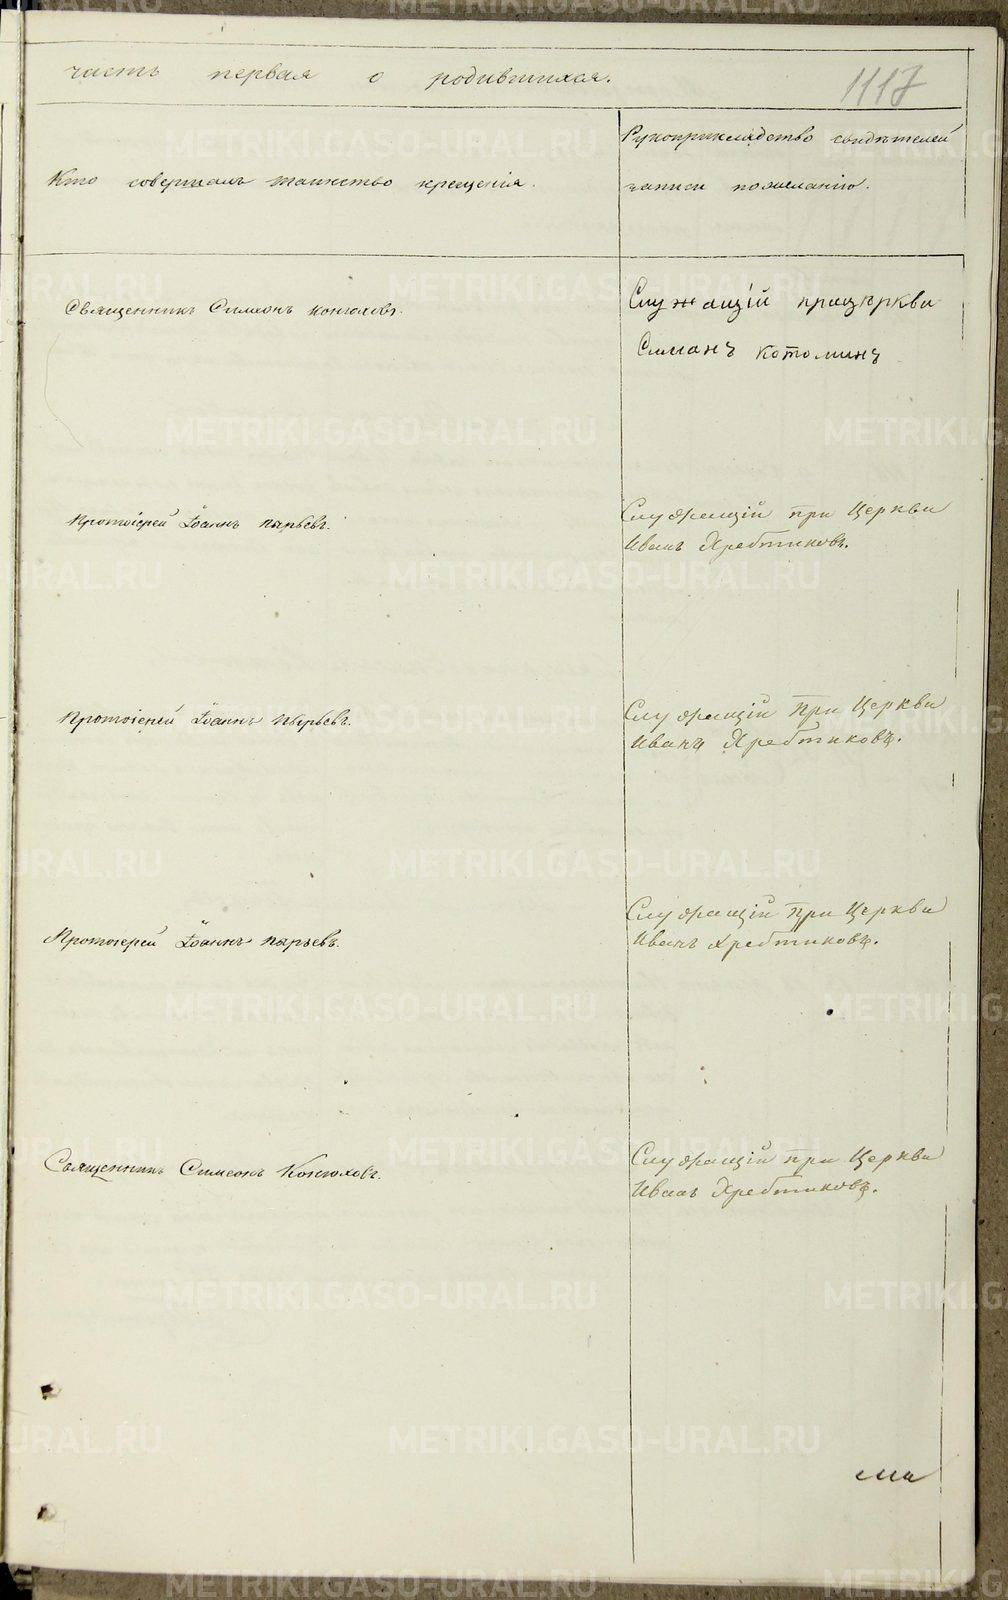 часть первая о родившихся.
1117
Кто совершалъ таинство крещенія.
Рукоприкладство свидѣтелей
записи по желанію.
Священникъ Симеонъ Конюховъ.
Служащій прицѣркви
Симанъ Котоминъ
Протоіерей Іоаннъ Пырьевъ.
Служащій при Церкви
Иванъ Хребтиковъ.
Протоіерей Іоаннъ Пырьевъ.
Служащій при Церкви
Иванъ Хребтиковъ.
Протоіерей Іоаннъ Пырьевъ.
Служащій при Церкви
Иванъ Хребтиковъ.
Священникъ Симеонъ Конюховъ.
Служащій при Церкви
Иванъ Хребтиковъ.
METRIKI.GASO-URAL.RU